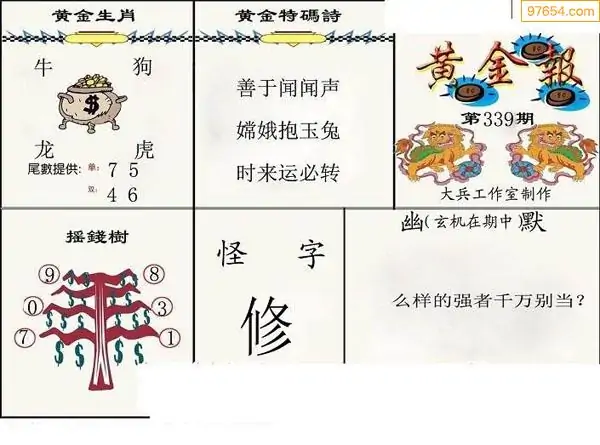 97654.com
黄金生肖
牛 狗
龙 虎
尾數提供: 单: 7 5
双: 4 6
黄金特碼詩
善于闻闻声
嫦娥抱玉兔
时来运必转
黄金報
第339期
大兵工作室制作
摇錢樹
9 8
0 3
7 1
怪 字
修
幽(玄机在期中)默
么样的强者千万别当?